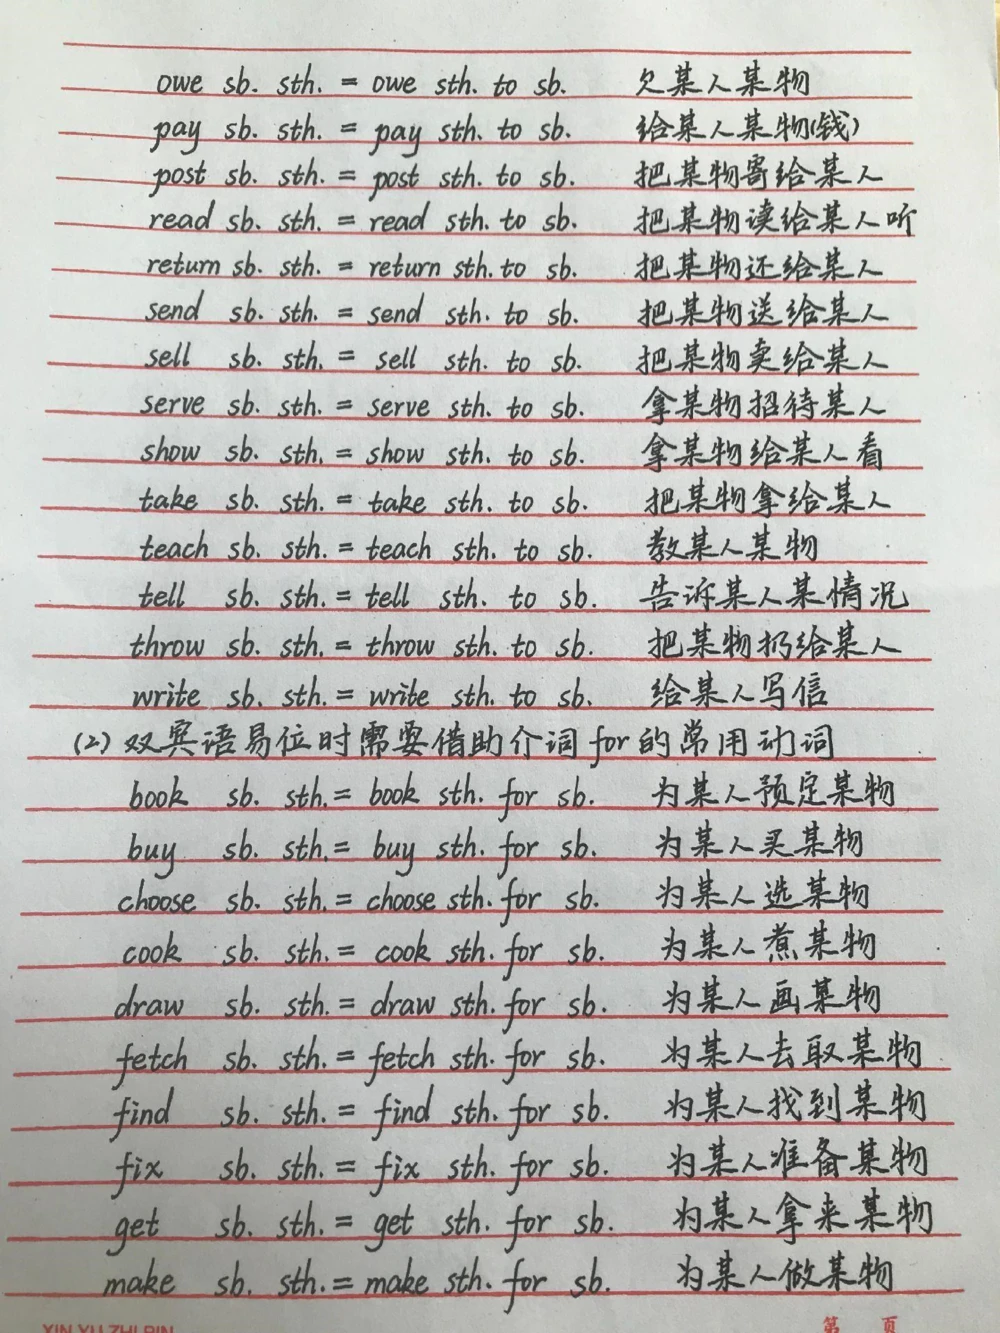 owe sb. sth. = owe sth. to sb. 欠某人某物
pay sb. sth. = pay sth. to sb. 给某人某物(钱)
post sb. sth. = post sth. to sb. 把某物寄给某人
read sb. sth. = read sth. to sb. 把某物读给某人听
return sb. sth. = return sth. to sb. 把某物还给某人
send sb. sth. = send sth. to sb. 把某物送给某人
sell sb. sth. = sell sth. to sb. 把某物卖给某人
serve sb. sth. = serve sth. to sb. 拿某物招待某人
show sb. sth. = show sth. to sb. 拿某物给某人看
take sb. sth. = take sth. to sb. 把某物拿给某人
teach sb. sth. = teach sth. to sb. 教某人某物
tell sb. sth. = tell sth. to sb. 告诉某人某情况
throw sb. sth. = throw sth. to sb. 把某物扔给某人
write sb. sth. = write sth. to sb. 给某人写信
(2) 双宾语易位时需要借助介词 for 的常用动词
book sb. sth. = book sth. for sb. 为某人预定某物
buy sb. sth. = buy sth. for sb. 为某人买某物
choose sb. sth. = choose sth. for sb. 为某人选某物
cook sb. sth. = cook sth. for sb. 为某人煮某物
draw sb. sth. = draw sth. for sb. 为某人画某物
fetch sb. sth. = fetch sth. for sb. 为某人去取某物
find sb. sth. = find sth. for sb. 为某人找到某物
fix sb. sth. = fix sth. for sb. 为某人准备某物
get sb. sth. = get sth. for sb. 为某人拿来某物
make sb. sth. = make sth. for sb. 为某人做某物
第 页